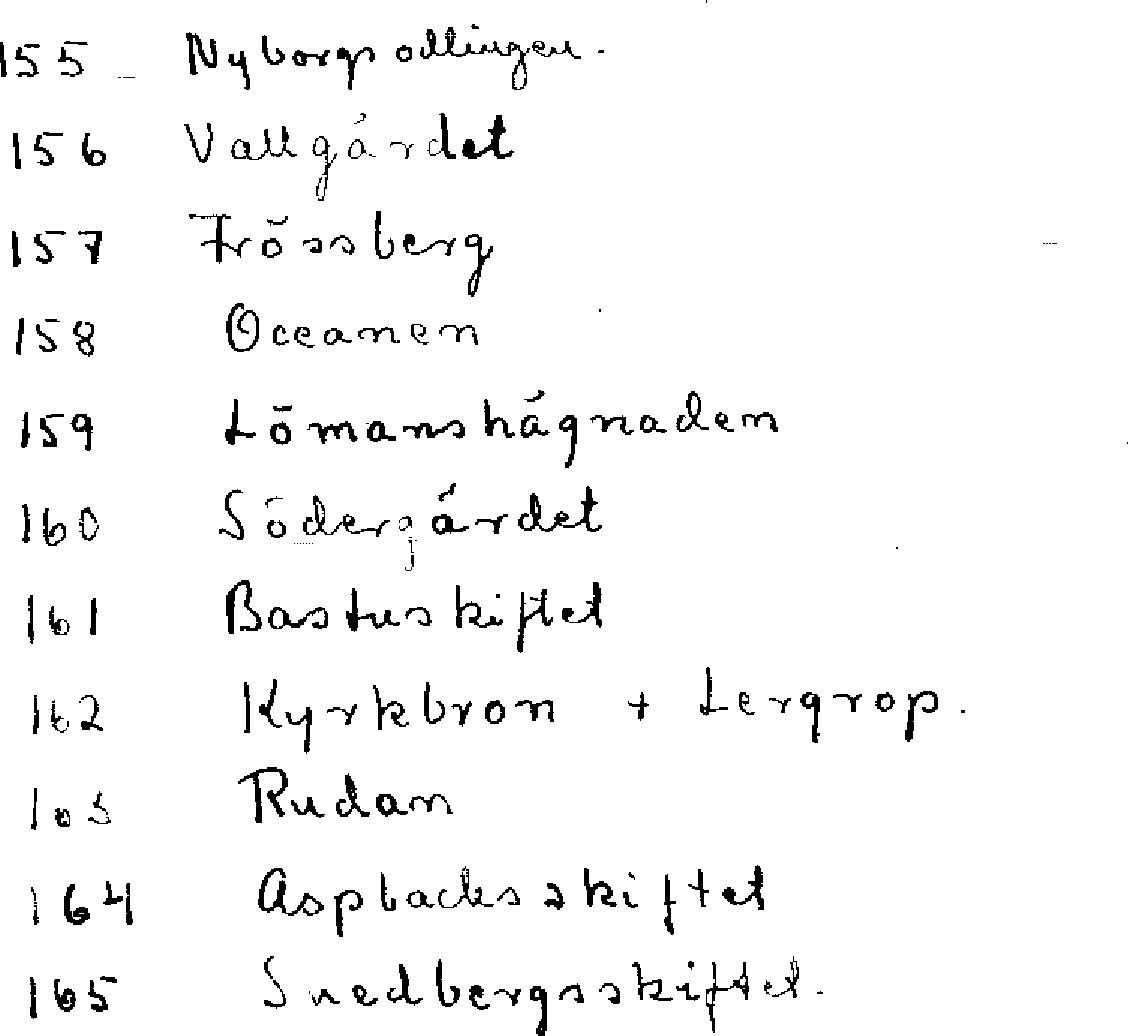 155 - Nyborgsodlingen.
156 Vallgårdet
157 Frössberg
158 Oceanen
159 Lömanshägnaden
160 Södergärdet
161 Bastuskiftet
162 Kyrkbron + Lergrop.
163 Rudan
164 Aspbacksskiftet
165 Snedbergsskiftet.